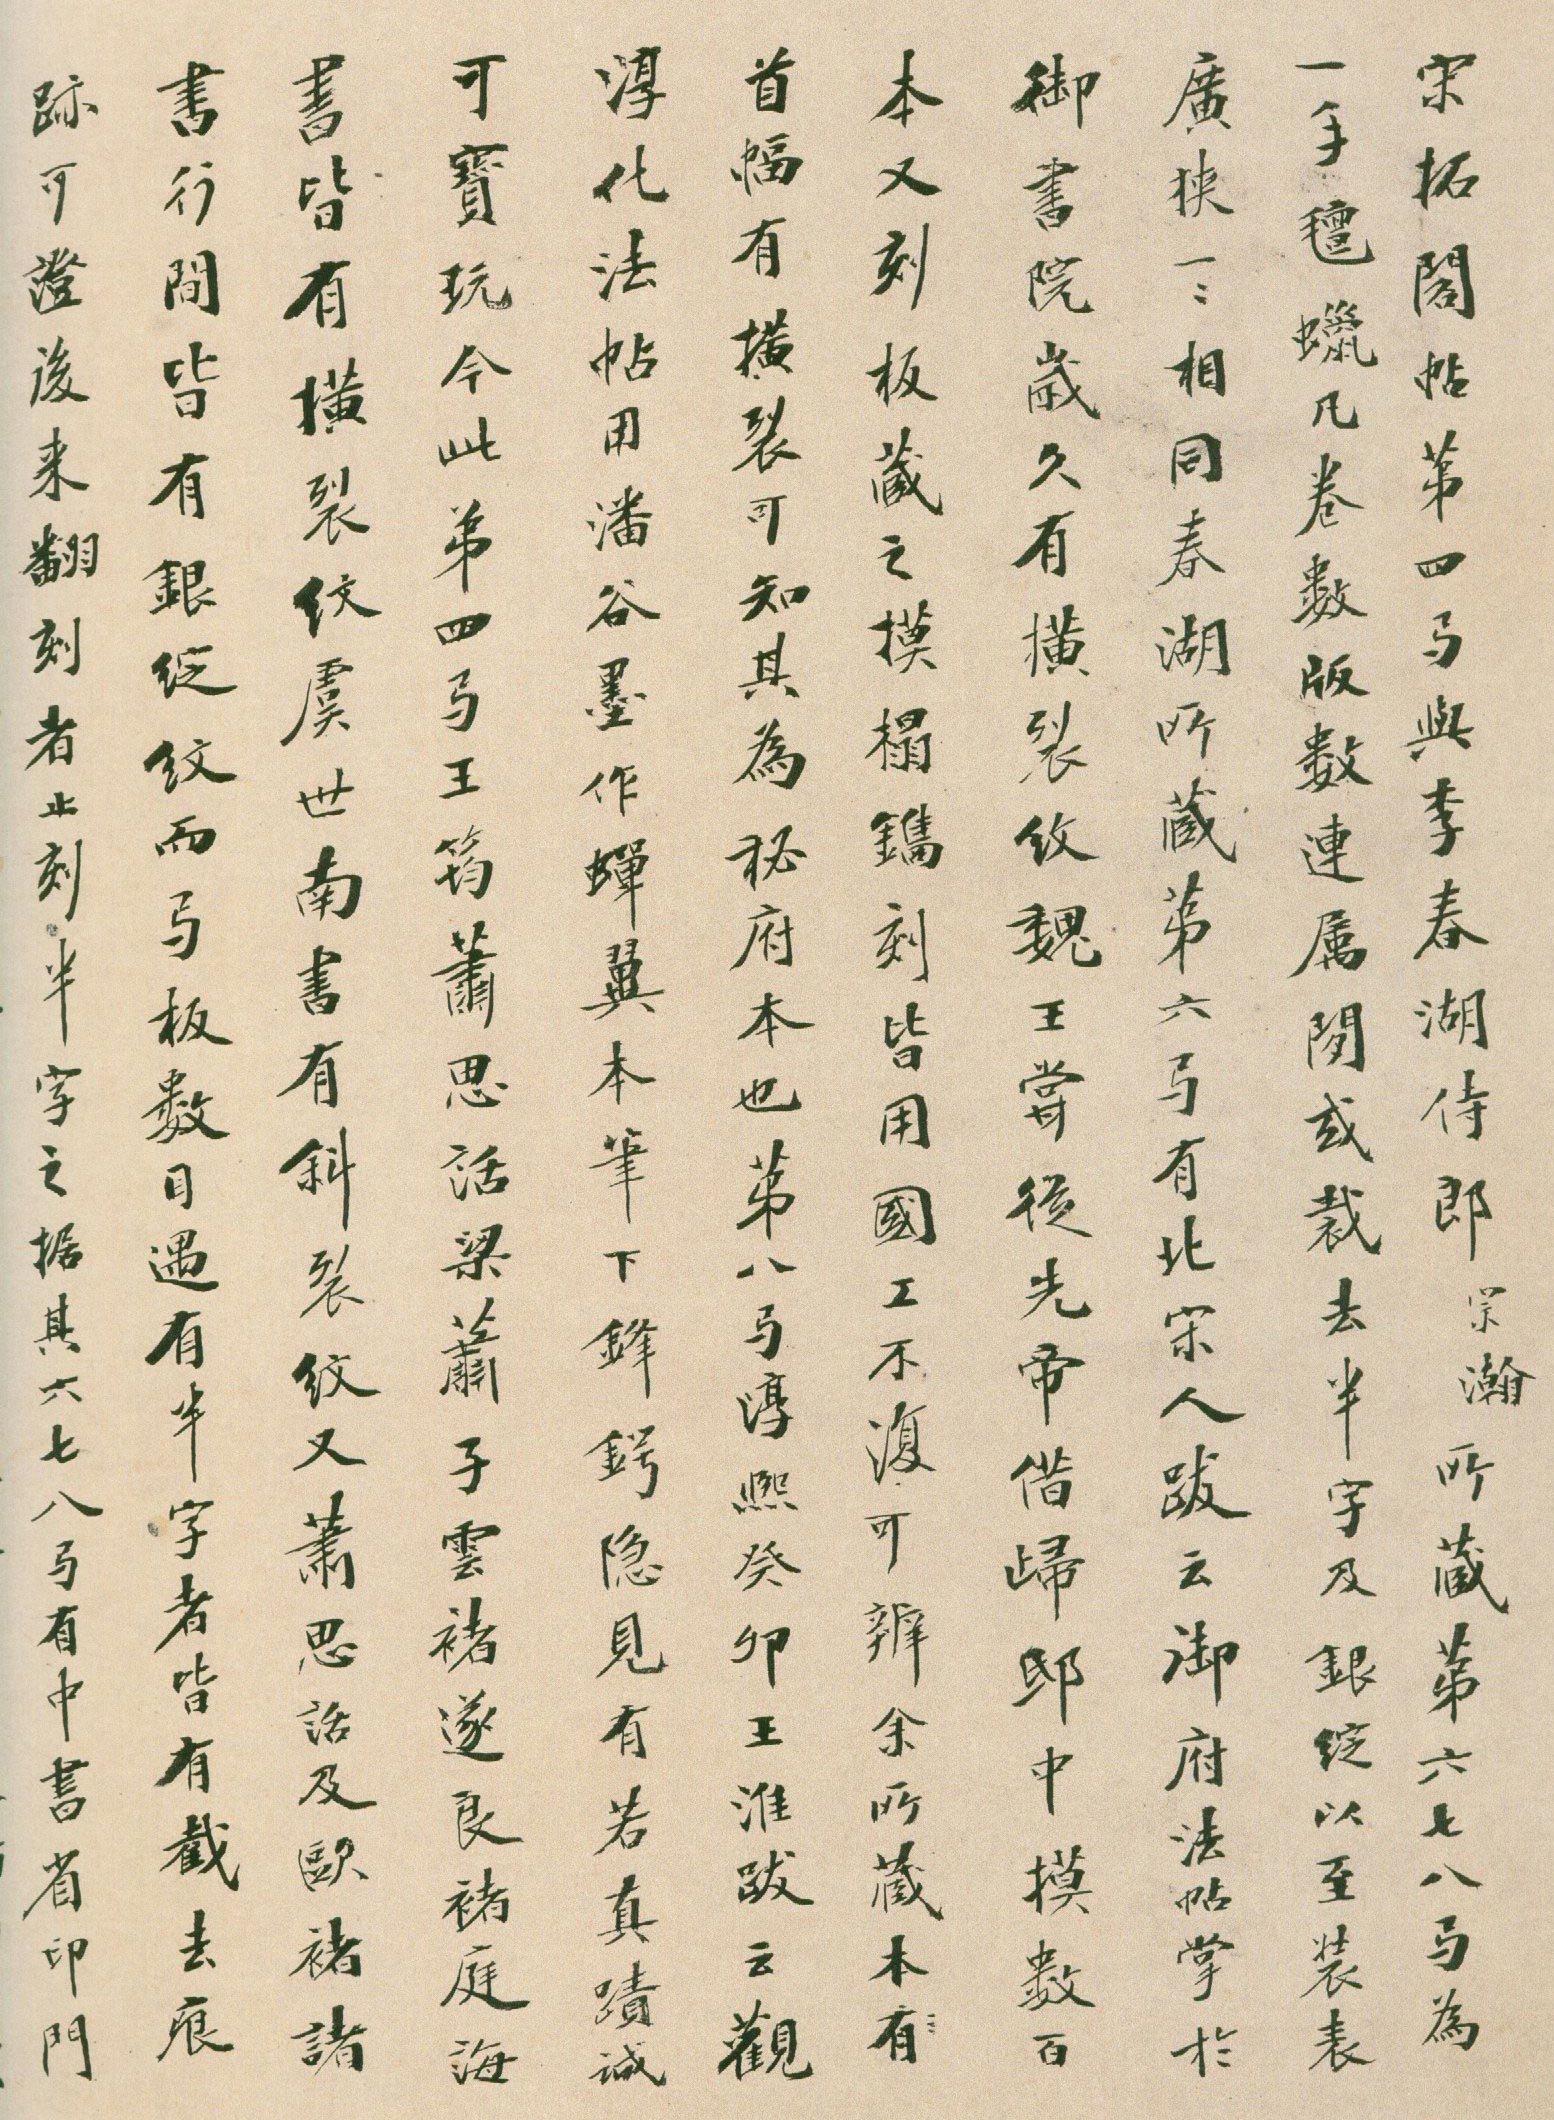 宋拓閣帖第四弓與李春湖侍郎宗瀚所藏第六七八弓為
一手氊蠟凡卷數版數連属閒或裁去半字及銀錠以至装表
廣狹一〻相同春湖所藏第六弓有北宋人跋云御府法帖掌於
御書院歲久有橫裂纹魏王嘗從先帝借歸邸中摸數百
本又刻板藏之摸榻鐫刻皆用國工不復可辨余所藏本有〻
首幅有橫裂可知其為秘府本也第八弓淳熙癸卯王淮跋云觀
淳化法帖用潘谷墨作蟬翼本筆下鋒鍔隐見有若真蹟誠
可寶玩今此弟四弓王筠蕭思話梁蕭子雲褚遂良褚庭海
書皆有橫裂纹虞世南書有斜裂纹又蕭思話及歐褚諸
書行間皆有銀錠纹而弓板數目遇有半字者皆有截去痕
跡可證後来翻刻者止刻半字之据其六七八弓有中書省印門